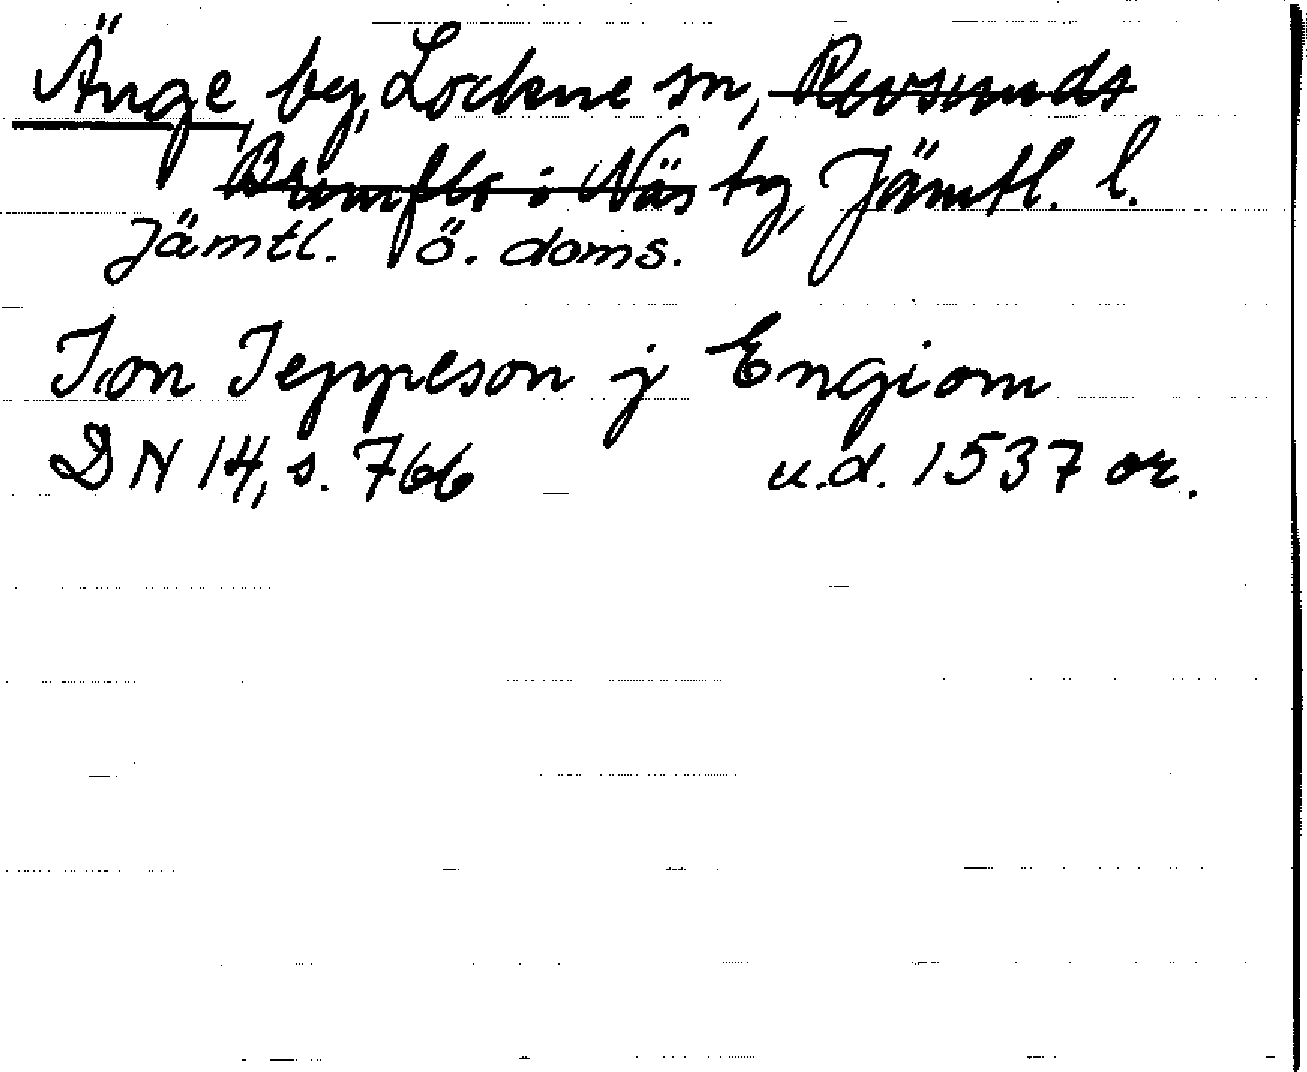 Änge, by, Lockne sn, Revsunds
Brunflo o Näs tg, Jämtl. l.
Jämtl. ö. doms.
Jon Jeppeson j Engiom
DN 14, s. 766 u.d. 1537 or.